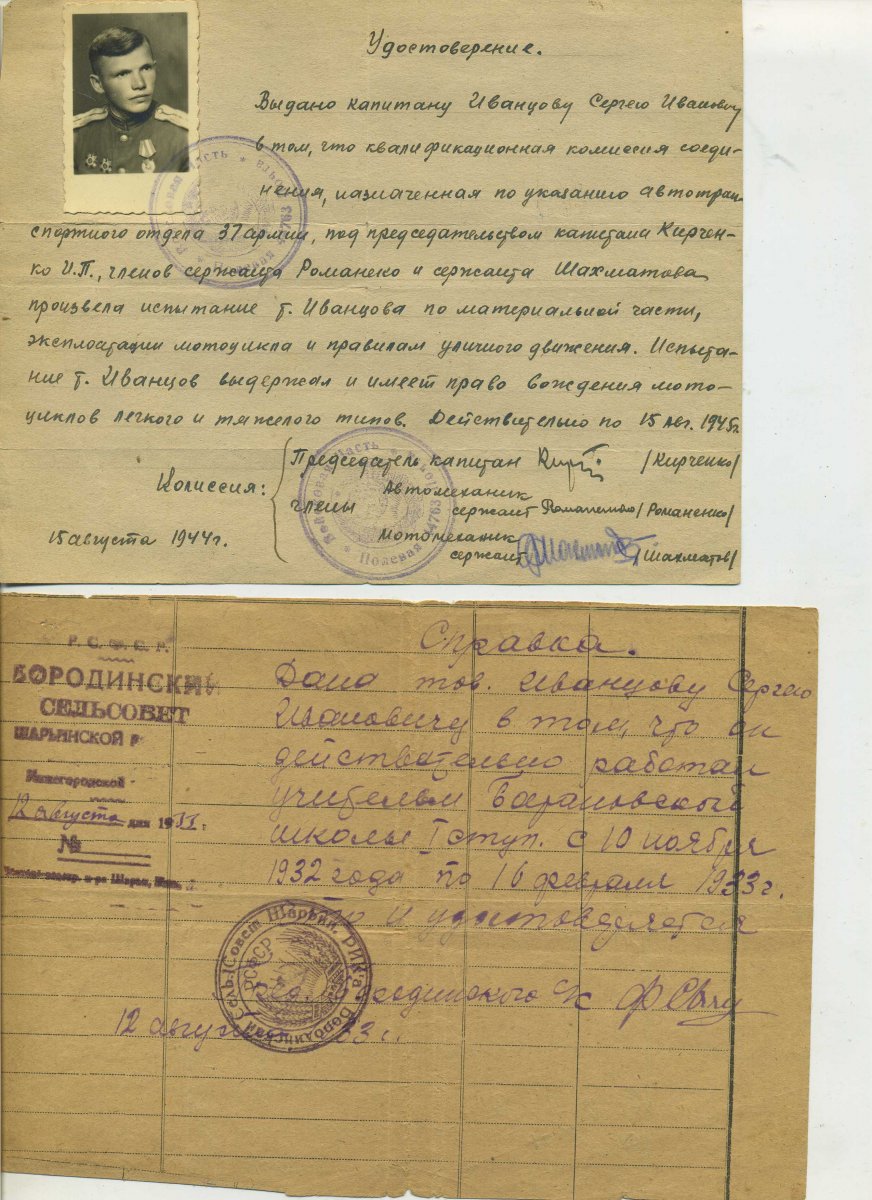 Удостоверение.
Выдано капитану Иванцову Сергею Ивановичу
в том, что квалификационная комиссия соеди-
нения, назначенная по указанию автотран-
спортного отдела 37 армии, под председательством капитана Кирчен-
ко И.П., членов сержанта Романеко и сержанта Шахматова
произвела испытание т. Иванцова по материальной части,
эксплоатации мотоцикла и правилам уличного движения. Испыта-
ние т. Иванцов выдержал и имеет право вождения мото-
циклов легкого и тяжелого типов. Действительно по 15 авг. 1945г.
Комиссия:
Председатель капитан /Кирченко/
члены Автомеханик
сержант /Романенко/
Мотомеханик
сержант /Шахматов/
15 августа 1944г.
Войсковая часть * Полевая 04763
Р. С. Ф. С. Р.
БОРОДИНСКИЙ
СЕЛЬСОВЕТ
ШАРЬИНСКОЙ Р
Нижегородской
12 августа дня 193 г.
№
Справка.
Дана тов. Иванцову Сергею
Ивановичу в том, что он
действительно работал
учителем Барановской
школы I ступ. с 10 ноября
1932 года по 16 февраля 1933 г.
что и удостоверяется
Бородинского с/с
12 августа 33 г.
РСФСР